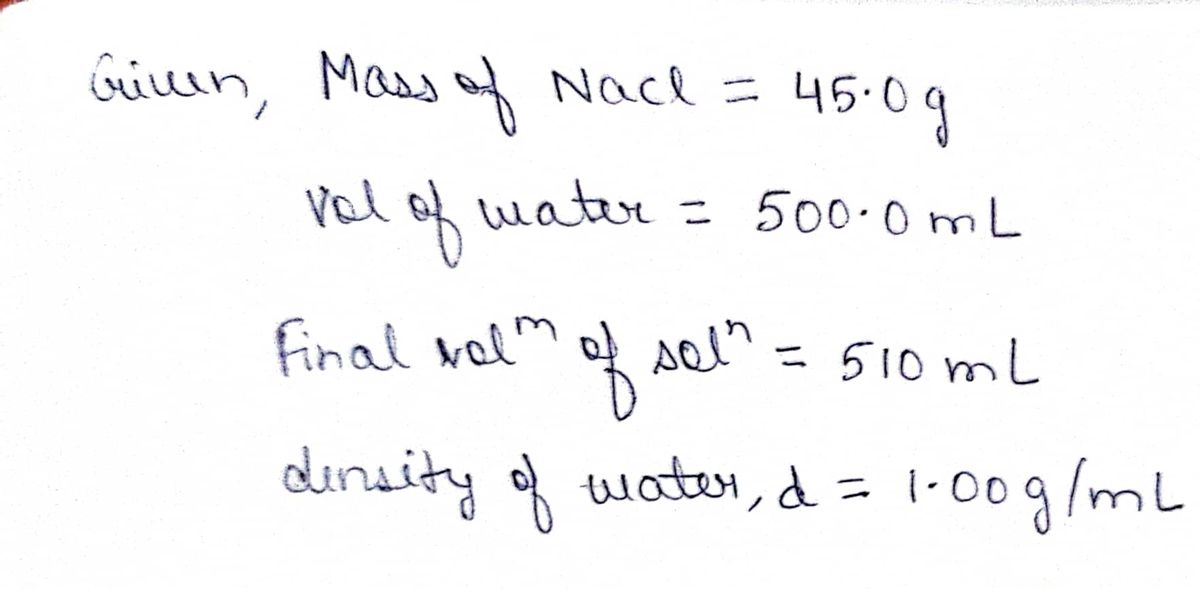 Given, Mass of Nacl = 45.0 g
Vol of water = 500.0 mL
Final volᵐ of solⁿ = 510 mL
density of water, d = 1.00 g/mL